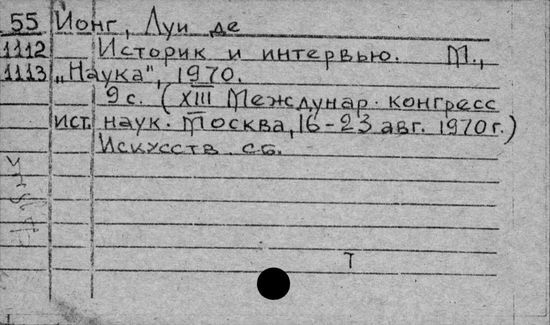 55 Ионг, Луи де
1112 Историк и интервью. М.,
1113 „Наука", 1970.
9с. (XIII Междунар. конгресс
ист. наук. Москва, 16-23 авг. 1970г.)
Искусств. сб.
Т